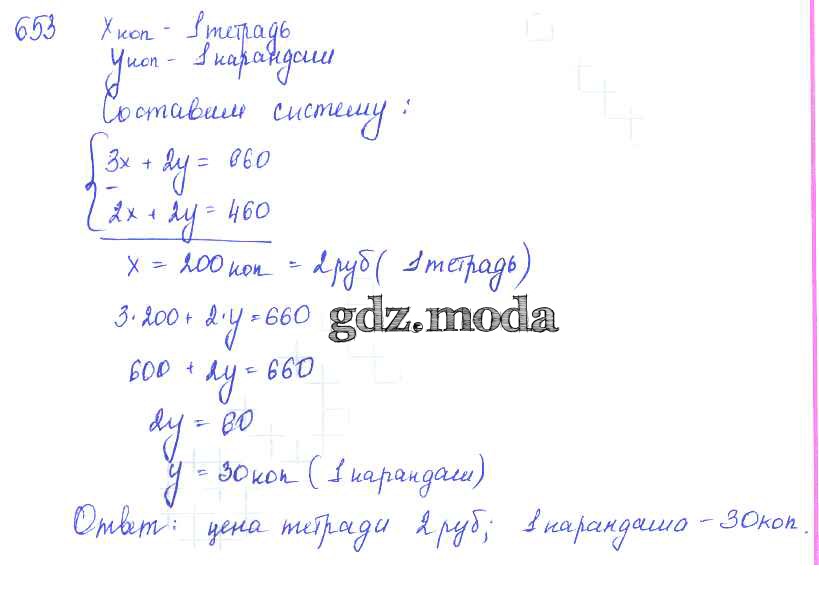 653 x коп - 1 тетрадь
y коп - 1 карандаш
Составим систему:
3x + 2y = 660
2x + 2y = 460
x = 200 коп = 2 руб ( 1 тетрадь)
3·200 + 2·y = 660
gdz.moda
600 + 2y = 660
2y = 60
y = 30 коп ( 1 карандаш)
Ответ: цена тетради 2 руб; 1 карандаша - 30 коп.